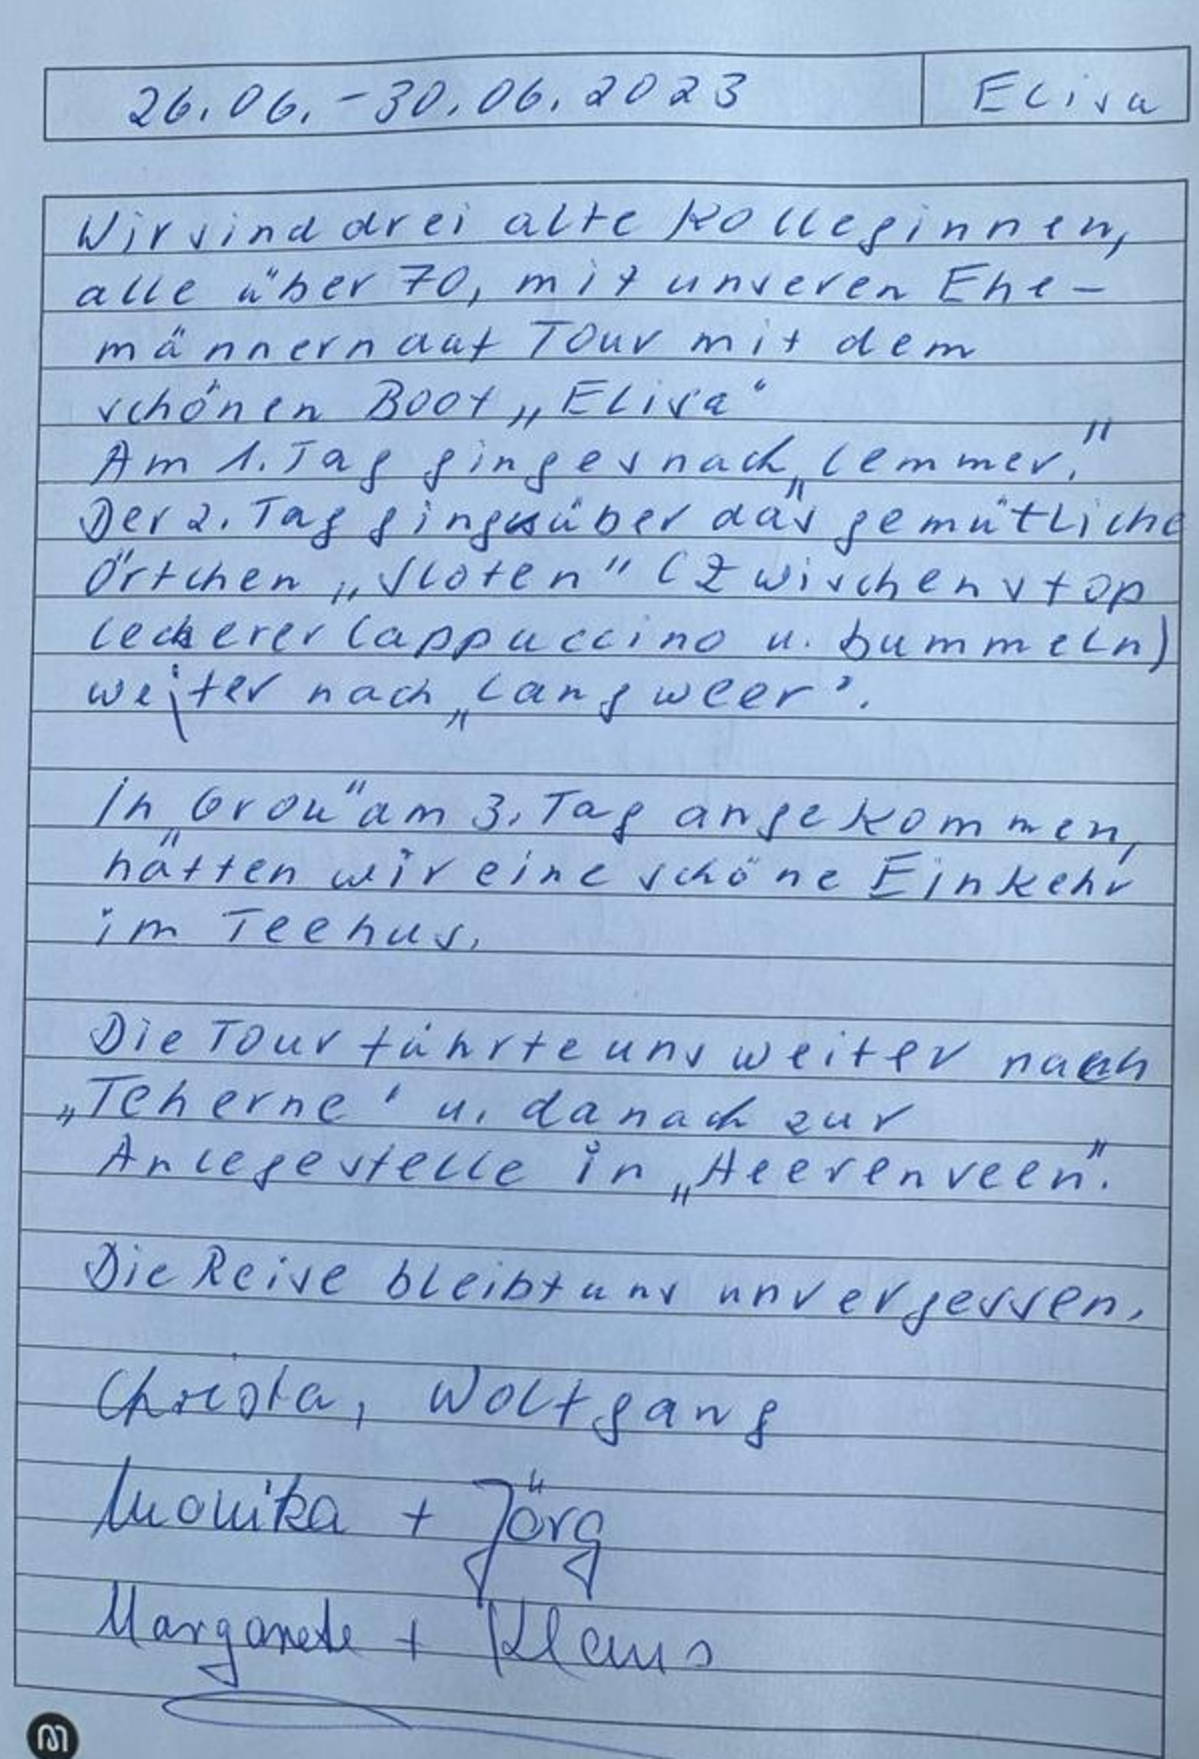 26.06.-30.06.2023 Elisa
Wir sind drei alte Kolleginnen,
alle über 70, mit unseren Ehe-
männern auf Tour mit dem
schönen Boot „Elisa"
Am 1. Tag ging es nach „Lemmer."
Der 2. Tag ging über das gemütliche
Örtchen „Sloten" (Zwischenstop
leckerer Cappuccino u. bummeln)
weiter nach „Langweer'.
In „Grou" am 3. Tag angekommen,
hatten wir eine schöne Einkehr
im Teehus.
Die Tour führte uns weiter nach
„Teherne' u. danach zur
Anlegestelle in „Heerenveen".
Die Reise bleibt uns unvergessen.
Christa, Wolfgang
Monika + Jörg
Margarete + Klaus